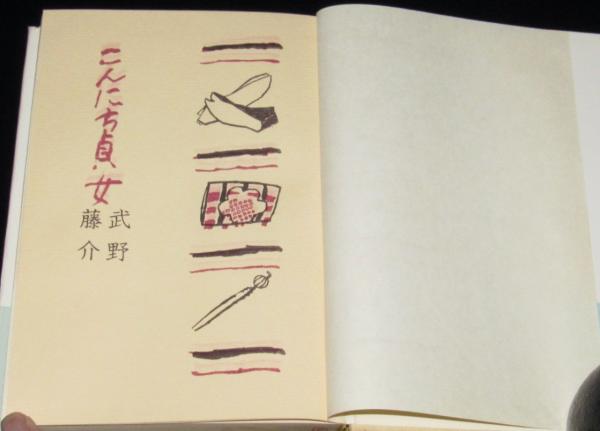 こんにち貞女
武野
藤介